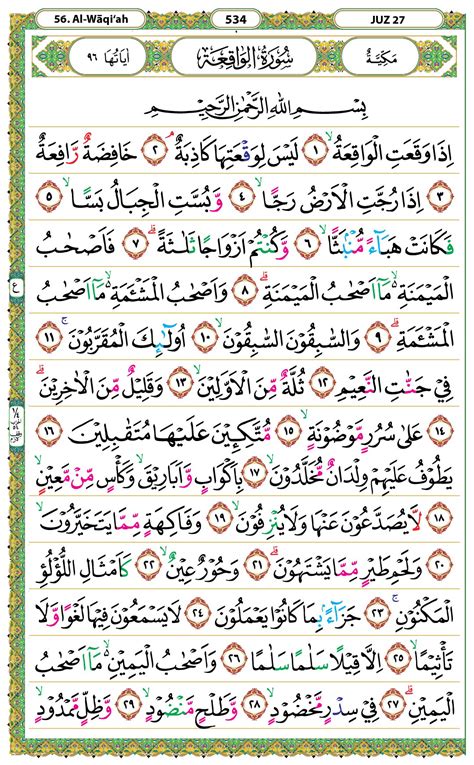 56. Al-Wāqi‘ah 534 JUZ 27
مَكِّيَّةٌ سُوْرَةُ الْوَاقِعَةِ اٰيَاتُهَا ٩٦
بِسْمِ اللّٰهِ الرَّحْمٰنِ الرَّحِيْمِ
اِذَا وَقَعَتِ الْوَاقِعَةُۙ ١ لَيْسَ لِوَقْعَتِهَا كَاذِبَةٌۘ ٢ خَافِضَةٌ رَّافِعَةٌ
٣ اِذَا رُجَّتِ الْاَرْضُ رَجًّاۙ ٤ وَّبُسَّتِ الْجِبَالُ بَسًّاۙ ٥
فَكَانَتْ هَبَاۤءً مُّنْۢبَثًّاۙ ٦ وَّكُنْتُمْ اَزْوَاجًا ثَلٰثَةًۗ ٧ فَاَصْحٰبُ
الْمَيْمَنَةِ ەۙ مَآ اَصْحٰبُ الْمَيْمَنَةِۗ ٨ وَاَصْحٰبُ الْمَشْـَٔمَةِ ەۙ مَآ اَصْحٰبُ
الْمَشْـَٔمَةِۗ ٩ وَالسّٰبِقُوْنَ السّٰبِقُوْنَۙ ١٠ اُولٰۤىِٕكَ الْمُقَرَّبُوْنَۚ ١١
فِيْ جَنّٰتِ النَّعِيْمِ ١٢ ثُلَّةٌ مِّنَ الْاَوَّلِيْنَۙ ١٣ وَقَلِيْلٌ مِّنَ الْاٰخِرِيْنَۗ
١٤ عَلٰى سُرُرٍ مَّوْضُوْنَةٍۙ ١٥ مُّتَّكِـِٕيْنَ عَلَيْهَا مُتَقٰبِلِيْنَ ١٦
يَطُوْفُ عَلَيْهِمْ وِلْدَانٌ مُّخَلَّدُوْنَۙ ١٧ بِاَكْوَابٍ وَّاَبَارِيْقَۙ وَكَأْسٍ مِّنْ مَّعِيْنٍۙ
١٨ لَّا يُصَدَّعُوْنَ عَنْهَا وَلَا يُنْزِفُوْنَۙ ١٩ وَفَاكِهَةٍ مِّمَّا يَتَخَيَّرُوْنَۙ
٢٠ وَلَحْمِ طَيْرٍ مِّمَّا يَشْتَهُوْنَۗ ٢١ وَحُوْرٌ عِيْنٌۙ ٢٢ كَاَمْثَالِ اللُّؤْلُؤِ
الْمَكْنُوْنِۚ ٢٣ جَزَاۤءًۢ بِمَا كَانُوْا يَعْمَلُوْنَ ٢٤ لَا يَسْمَعُوْنَ فِيْهَا لَغْوًا وَّلَا
تَأْثِيْمًاۙ ٢٥ اِلَّا قِيْلًا سَلٰمًا سَلٰمًا ٢٦ وَاَصْحٰبُ الْيَمِيْنِ ەۙ مَآ اَصْحٰبُ
الْيَمِيْنِۗ ٢٧ فِيْ سِدْرٍ مَّخْضُوْدٍۙ ٢٨ وَّطَلْحٍ مَّنْضُوْدٍۙ ٢٩ وَّظِلٍّ مَّمْدُوْدٍۙ
ع